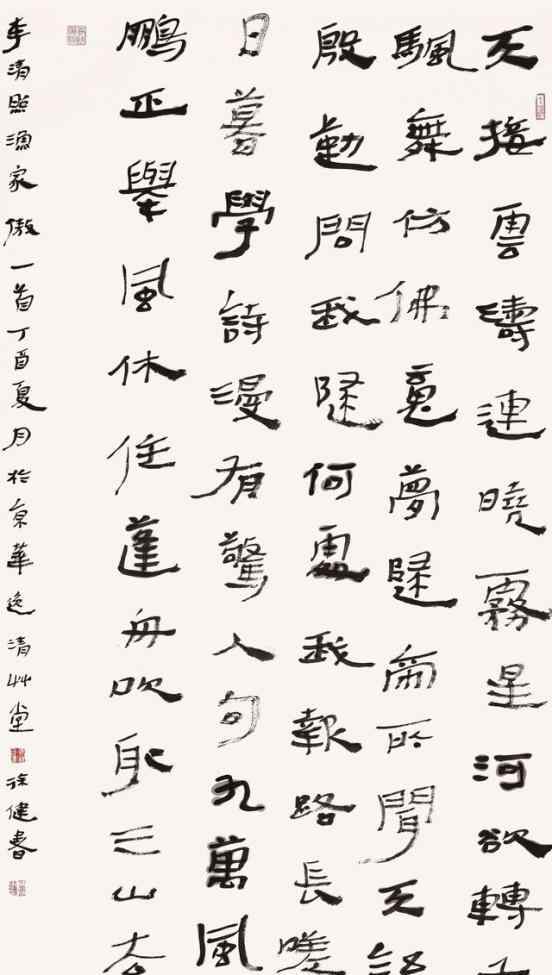 天接雲濤連曉霧星河欲轉
颿舞仿佛竟夢歸帝所聞天語
殷勤問我歸何處我報路長嗟
日暮學詩漫有驚人句九萬風
鵬正舉風休住蓬舟吹取三山去
李清照漁家傲一首丁酉夏月於京華逸清艸堂徐健書